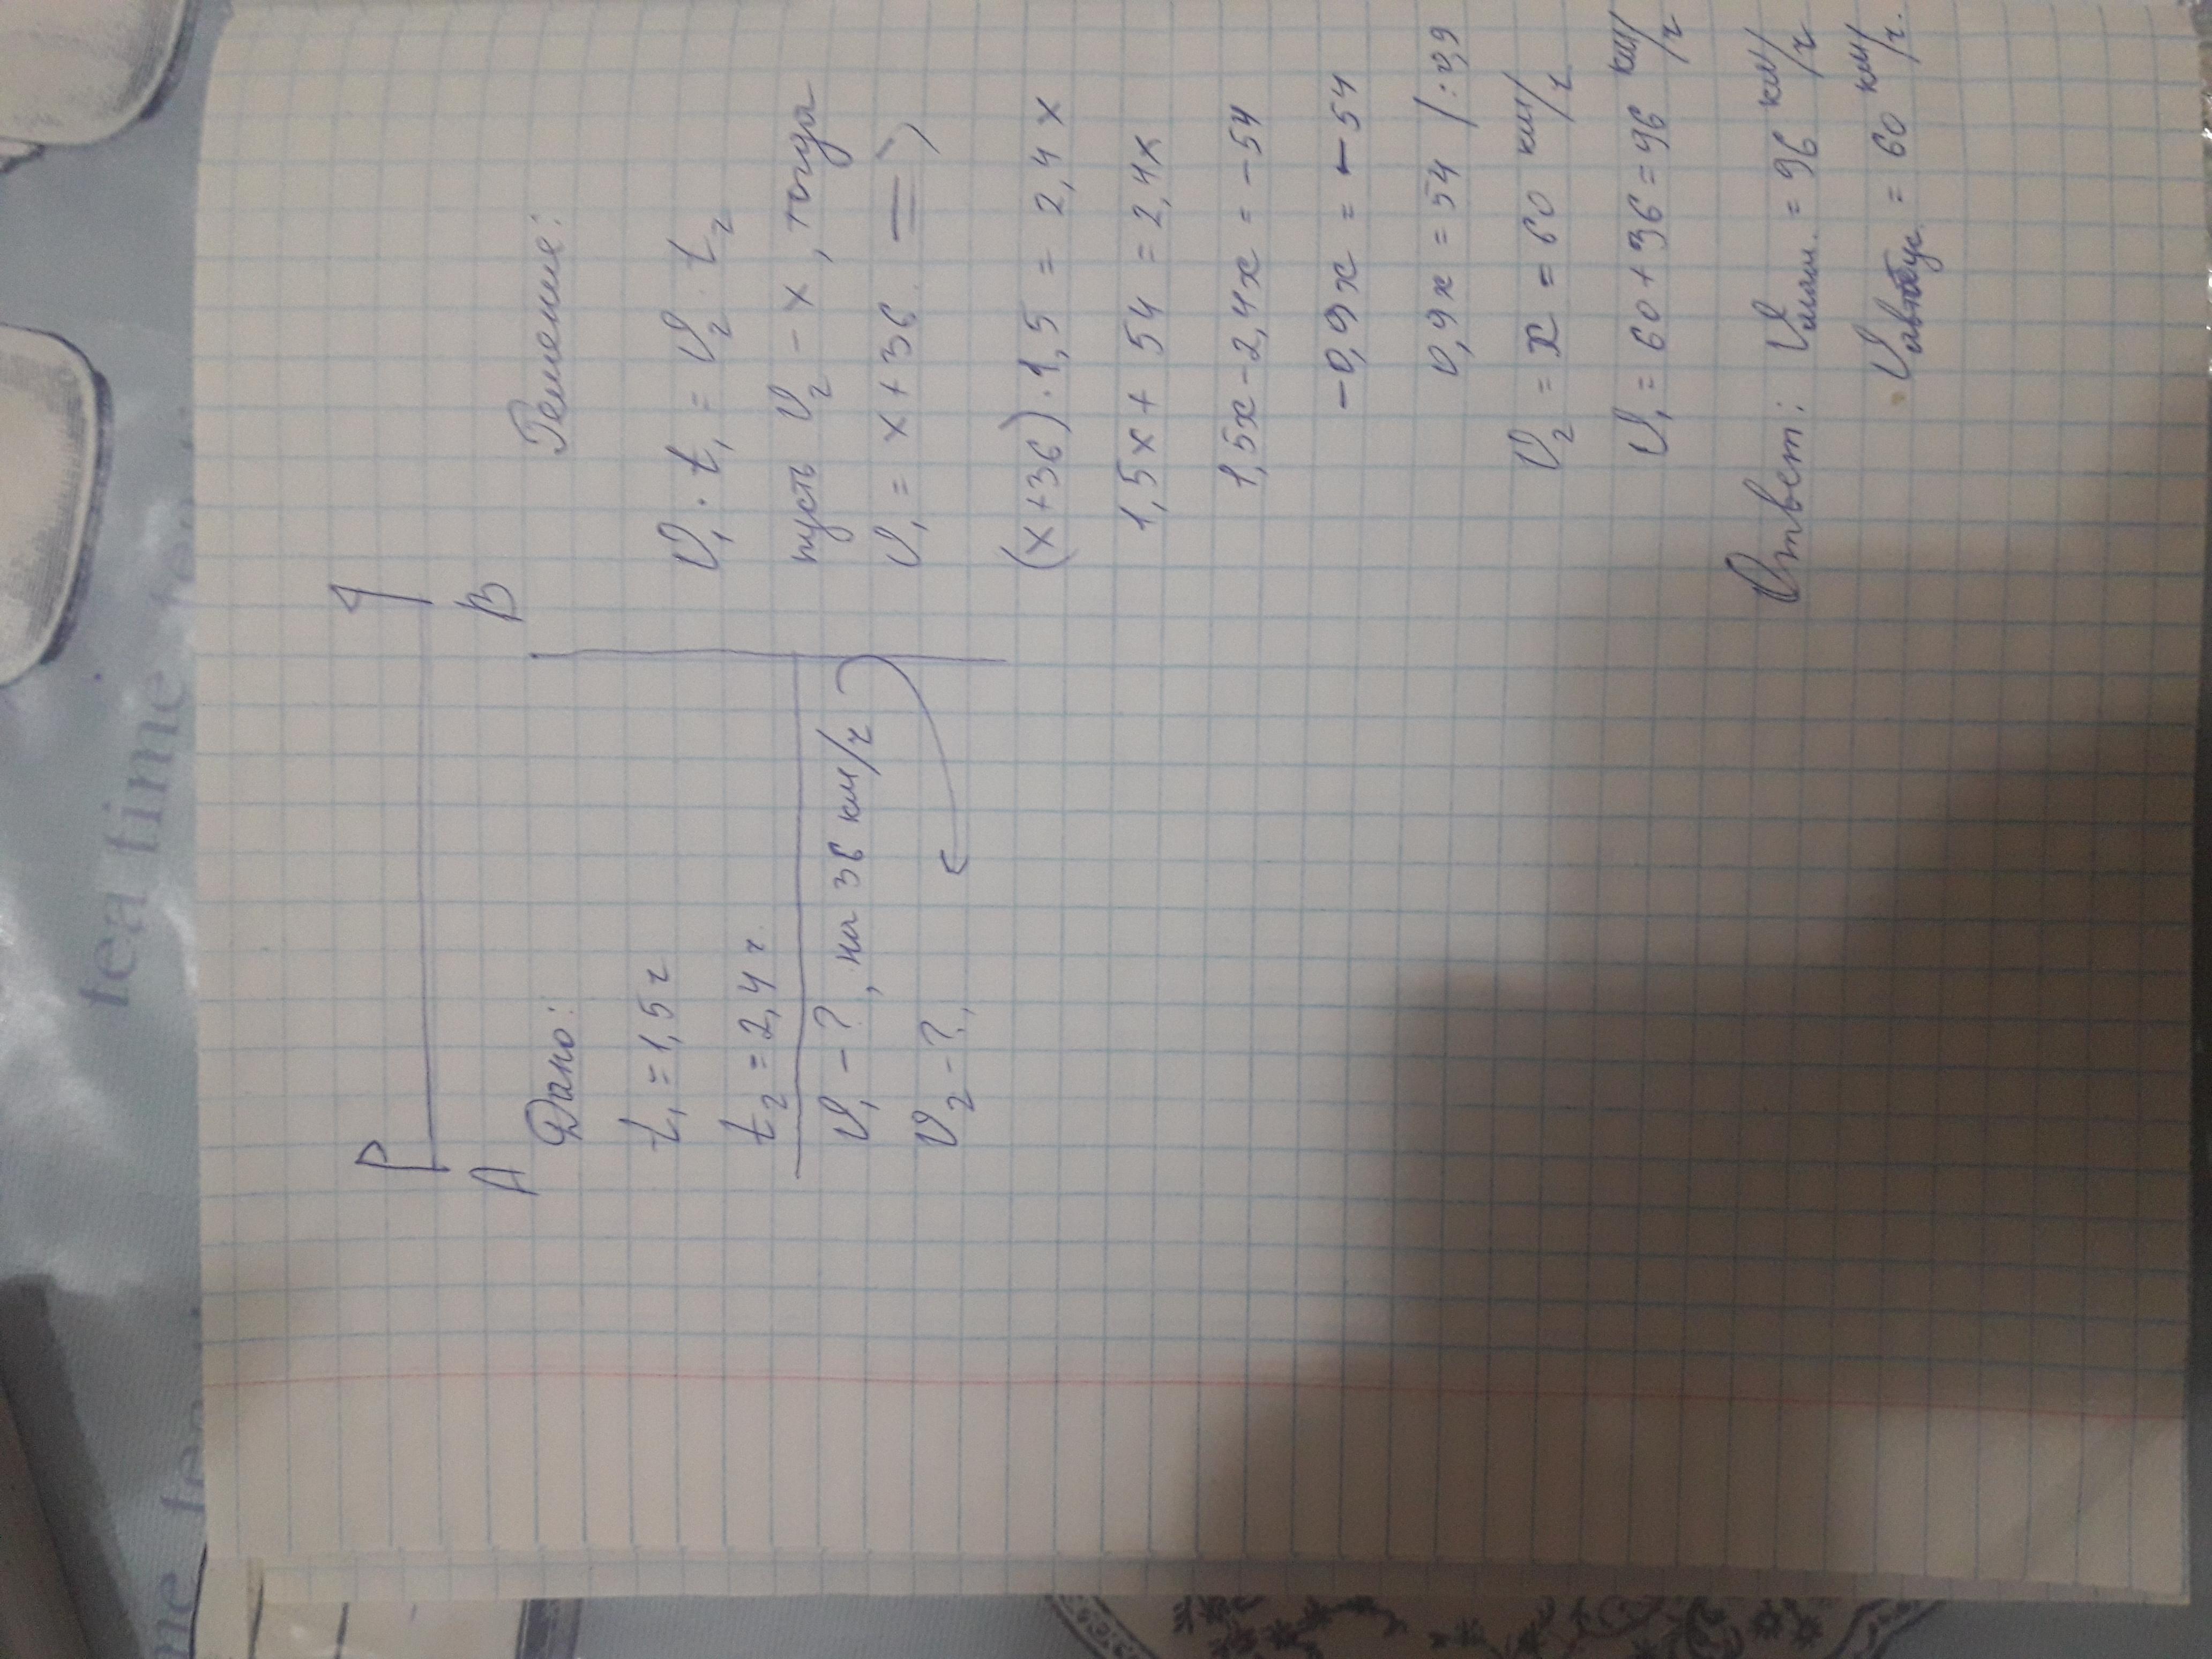 A B
Дано:
t₁ = 1,5 ч
t₂ = 2,4 ч.
V₁ - ?, на 36 км/ч
V₂ - ?,
Решение:
V₁ · t₁ = V₂ · t₂
пусть V₂ - x, тогда
V₁ = x + 36. =>
(x+36) · 1,5 = 2,4 x
1,5x + 54 = 2,4x
1,5x - 2,4x = -54
-0,9x = -54
0,9x = 54 | : 0,9
V₂ = x = 60 км/ч
V₁ = 60 + 36 = 96 км/ч
Ответ: Vмаш. = 96 км/ч
Vавтобус. = 60 км/ч.
tea time